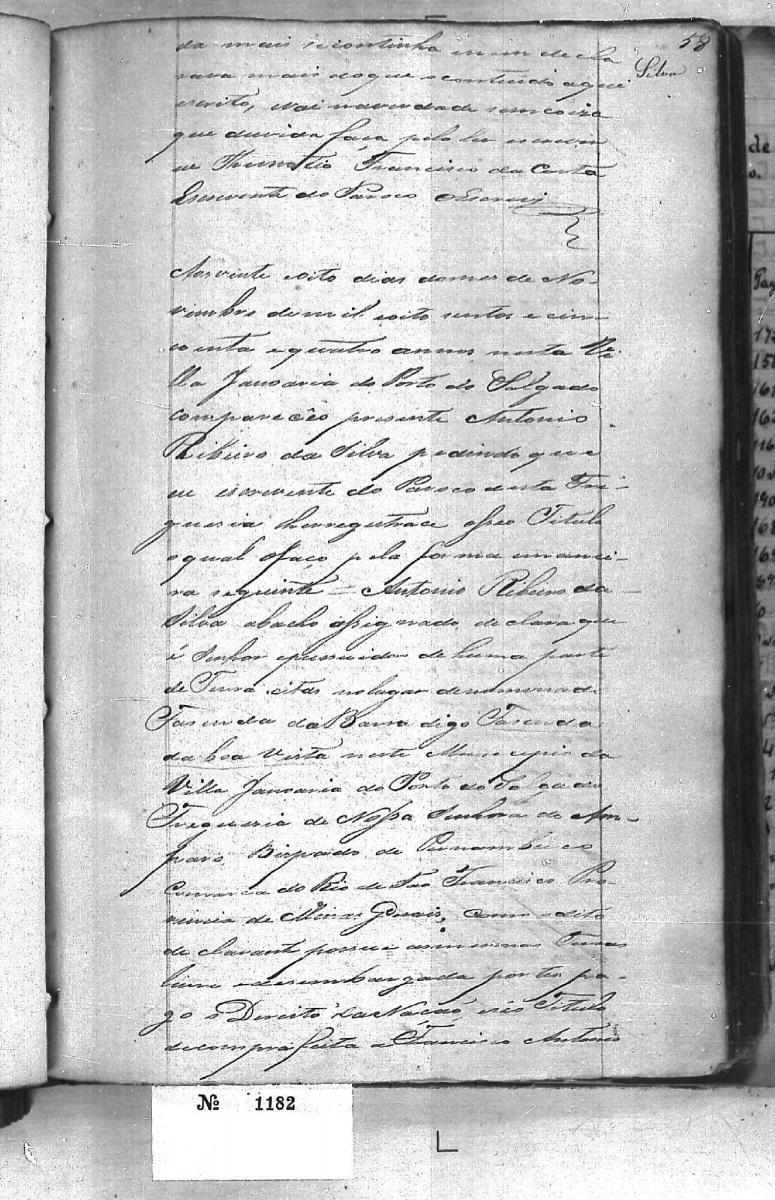 58
Silva
da mais se continha nem decla
rava mais do que o contiudo aqui
escrito, e vai na verdade sem coiza
que duvida faça pelo eu escreven
te Francisco da Costa
Escrevente do Paroco o Escrevi
Aos vinte e oito dias do mes de No-
vimbro de mil e oito sentos e cin-
coenta e quatro annos nesta Vi
lla Januaria do Porto do Salgado
compareceo presente Antonio
Ribeiro da Silva pedindo que
eu escrevente do Paroco desta Fre-
gueria lhe regestrace o seo Titulo
o qual o faço pela forma e manei-
ra seguinte = Antonio Ribeiro da
Silva abacho assignado, declara que
é Senhor e pussuidor de huma parte
de Terra citas no lugar denominad
Fasenda da Barra digo Fasenda
da boa Vista neste Municipio da
Villa Januaria do Porto do Salgado
Fregueria de Nossa Senhora do Am-
paro Bispado de Pernambuco
Comarca do Rio de Sao Francisco Pro-
vincia de Minas Gerais, como o dito
declarante possue as mesmas Terras
livre e desembargada por ter pa-
go o Direito da Nação, e o Titulo
de compra feita a Francisco Antonio
de
o.
Nº 1182